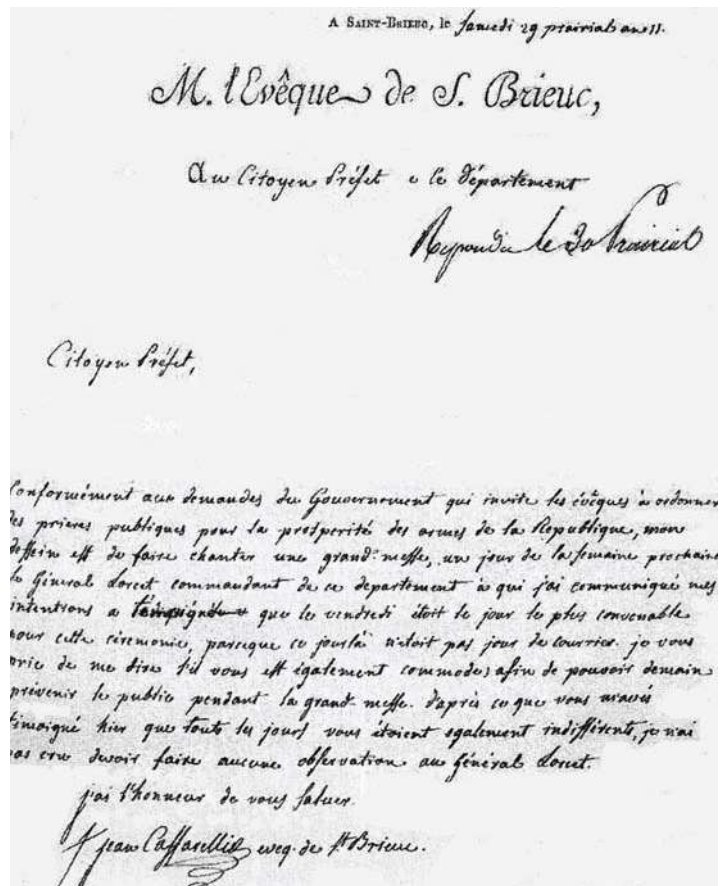 A SAINT-BRIEUC, le Samedi 29 prairial an 11.
M. l'Evêque de S. Brieuc,
Au Citoyen Préfet e ce Département
Repondu le 30 Prairial
Citoyen Préfet,
Conformément aux demandes du Gouvernement qui invite les évêques à ordonner
des prieres publiques pour la prosperité des armes de la Republique, mon
dessein est de faire chanter une grand-messe, un jour de la semaine prochaine
le Général Lorcet commandant de ce departement à qui j'ai communiqué mes
intentions a témoigné que le vendredi étoit le jour le plus convenable
pour cette cérémonie, parceque ce jour là n'étoit pas jour de courrier. je vous
prie de me dire s'il vous est également commode; afin de pouvoir demain
prévenir le public pendant la grand-messe. d'après ce que vous m'avés
timoigné hier que touts les jours vous étoient egalement indifférents, je n'ai
pas cru devoir faire aucune observation au Général Lorcet.
j'ai l'honneur de vous saluer.
+ jean Caffarelli eveq. de St. Brieuc.